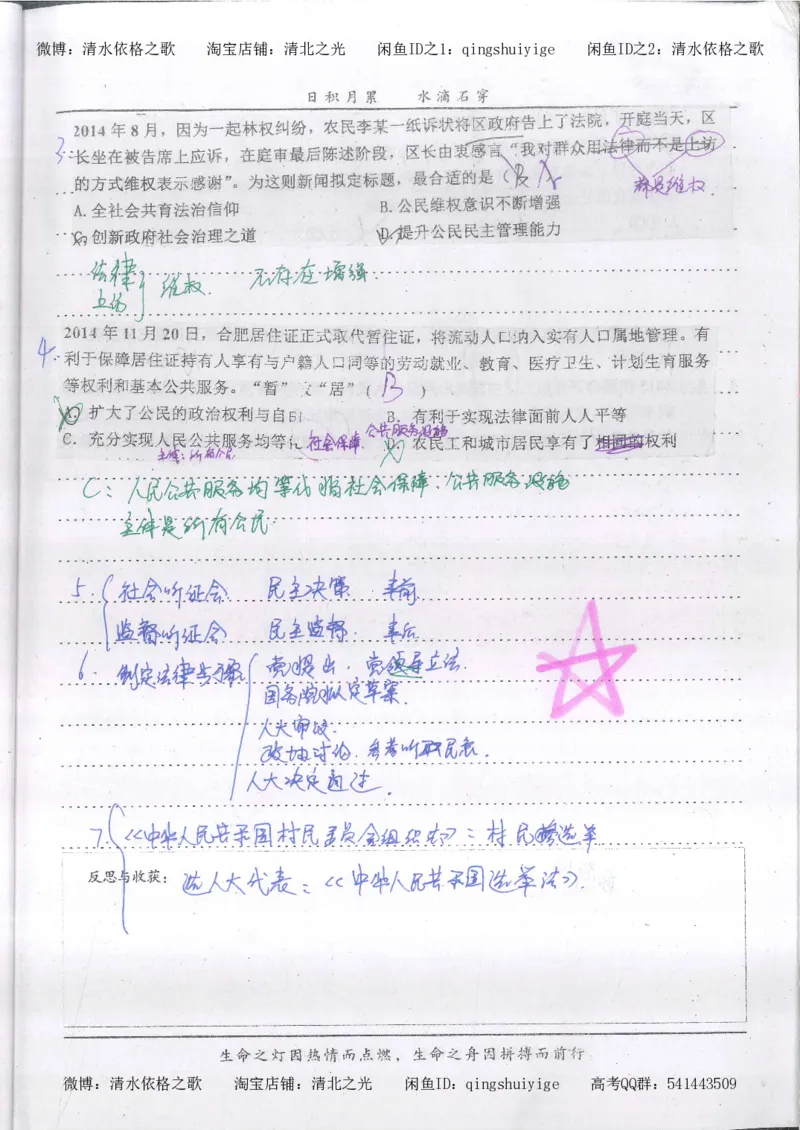 微博：清水依格之歌 淘宝店铺：清北之光 闲鱼ID之1：qingshuiyige 闲鱼ID之2：清水依格之歌
日积月累 水滴石穿
3. 2014年8月，因为一起林权纠纷，农民李某一纸诉状将区政府告上了法院，开庭当天，区
长坐在被告席上应诉，在庭审最后陈述阶段，区长由衷感言“我对群众用法律而不是上访
的方式维权表示感谢”。为这则新闻拟定标题，最合适的是（B A
都是维权.
A. 全社会共育法治信仰 B. 公民维权意识不断增强
C. 创新政府社会治理之道 D. 提升公民民主管理能力
法律
上访 } 维权. 不存在增强.
4. 2014年11月20日，合肥居住证正式取代暂住证，将流动人口纳入实有人口属地管理。有
利于保障居住证持有人享有与户籍人口同等的劳动就业、教育、医疗卫生、计划生育服务
等权利和基本公共服务。“暂”“居” B ）
A. 扩大了公民的政治权利与自由 B. 有利于实现法律面前人人平等
C. 充分实现人民公共服务均等化 社会保障. 公共服务设施 D. 农民工和城市居民享有了相同的权利
主体：所有公民
C：人民公共服务均等化指社会保障、公共服务设施
主体是所有公民.
5. { 社会听证会 民主决策 事前.
监督听证会 民主监督. 事后.
6. 制定法律步骤 { 党提出，党领导立法.
国务院拟定草案.
人大审议.
政协讨论，参考听取民意.
人大决定通过.
7. { 《中华人民共和国村民委员会组织法》：村民选举
反思与收获： 选人大代表：《中华人民共和国选举法》.
生命之灯因热情而点燃，生命之舟因拼搏而前行
微博：清水依格之歌 淘宝店铺：清北之光 闲鱼ID：qingshuiyige 高考QQ群：541443509